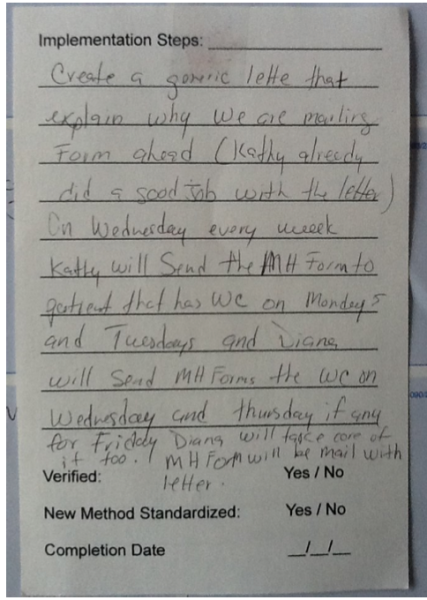 Implementation Steps:
Create a generic lette that
explain why we are mailing
Form ahead (Kathy already
did a good job with the letter)
On Wednesday every week
Kathy will Send the MH Form to
patient that has WC on Mondays
and Tuesdays and Diana
will Send MH Forms the WC on
Wednesday and thursday if any
for Friday Diana will take care of
it too. MH Form will be mail with
letter.
Verified: Yes / No
New Method Standardized: Yes / No
Completion Date __/__/__